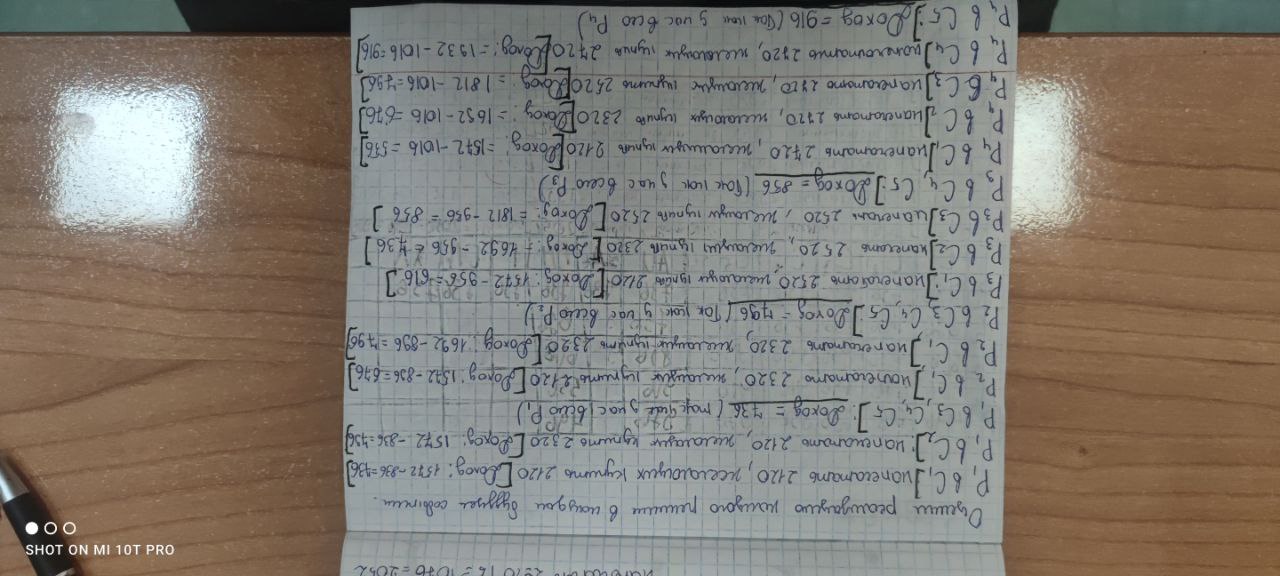 напечатать 2520
Оценим реализацию каждого решения в каждом будущем событии.
P₁ в C₁] напечатать 2120, желающих купить 2120 [Доход: 1572-836=736]
P₁ в C₂]: напечатать 2120, желающих купить 2320 [Доход: 1572-836=736]
P₁ в C₃, C₄, C₅]: Доход = 736 (так как у нас всего P₁)
P₂ в C₁] напечатать 2320, желающих купить 2120 [Доход: 1572-896=676]
P₂ в C₁] напечатать 2320, желающих купить 2320 [Доход: 1692-896=796]
P₂ в C₃, C₄, C₅] Доход = 796 (Так как у нас всего P₂)
P₃ в C₁] напечатать 2520, желающих купить 2120 [Доход: 1572-956=616]
P₃ в C₂] напечатать 2520, желающих купить 2320 [Доход: 1692-956=736]
P₃ в C₃] напечатать 2520, желающих купить 2520 [Доход: =1812-956=856]
P₃ в C₄, C₅] Доход = 856 (Так как у нас всего P₃)
P₄ в C₁] напечатать 2720, желающих купить 2120 [Доход: =1572-1016=556]
P₄ в C₂] напечатать 2720, желающих купить 2320 [Доход: =1692-1016=676]
P₄ в C₃] напечатать 2720, желающих купить 2520 [Доход: =1812-1016=796]
P₄ в C₄] напечатать 2720, желающих купить 2720 [Доход: =1932-1016=916]
P₄ в C₅]: Доход = 916 (Так как у нас всего P₄)
SHOT ON MI 10T PRO